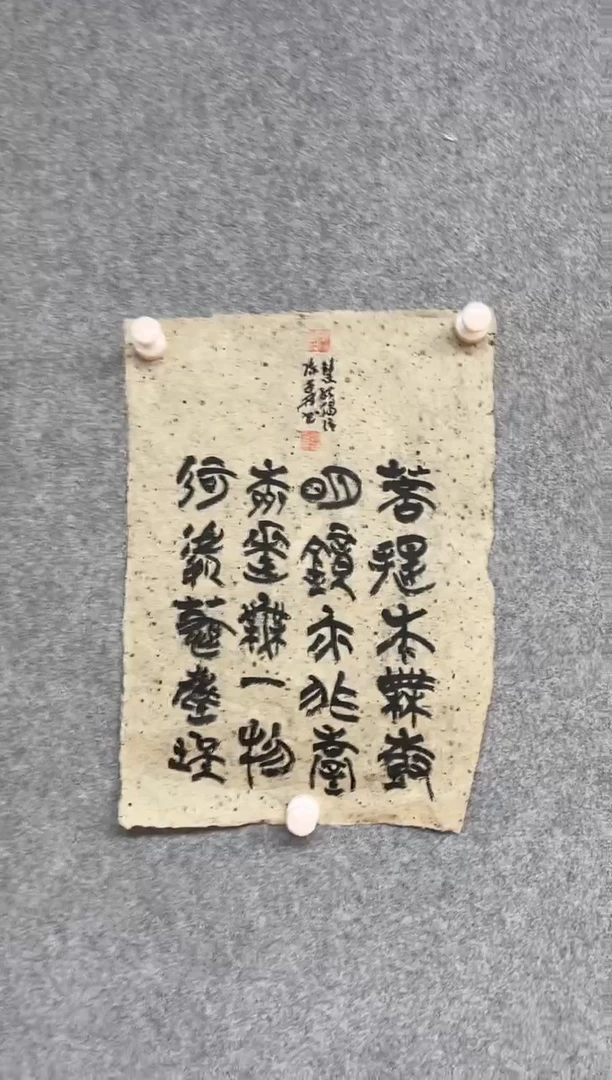 菩提本無樹
明鏡亦非臺
本來無一物
何處惹塵埃
慧能偈語